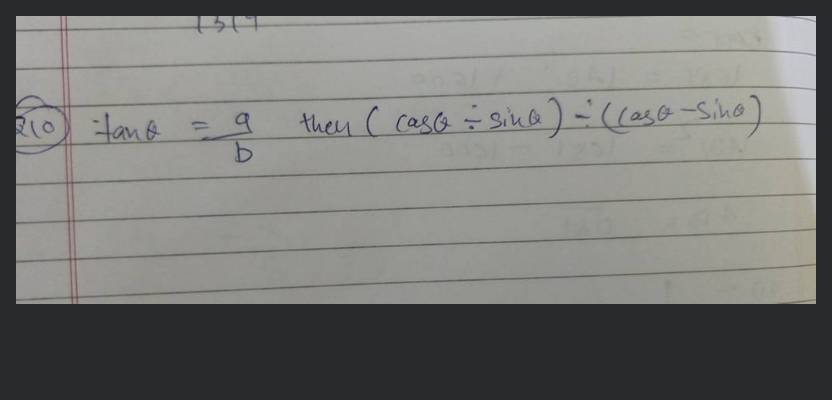 1319
210 tanθ = a/b then (cosθ ÷ sinθ) ÷ (cosθ - sinθ)